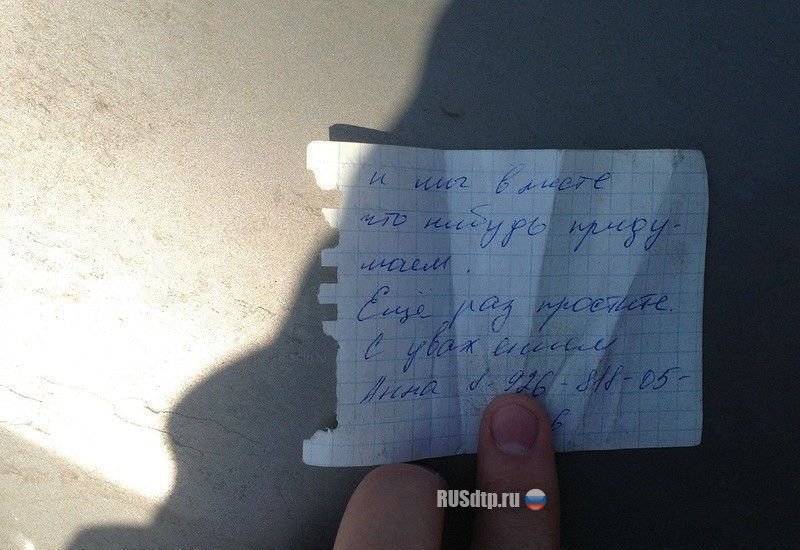 и мы вместе
что нибудь приду-
маем.
Ещё раз простите.
С уважением
Анна 8-926-818-05-
6
RUSdtp.ru